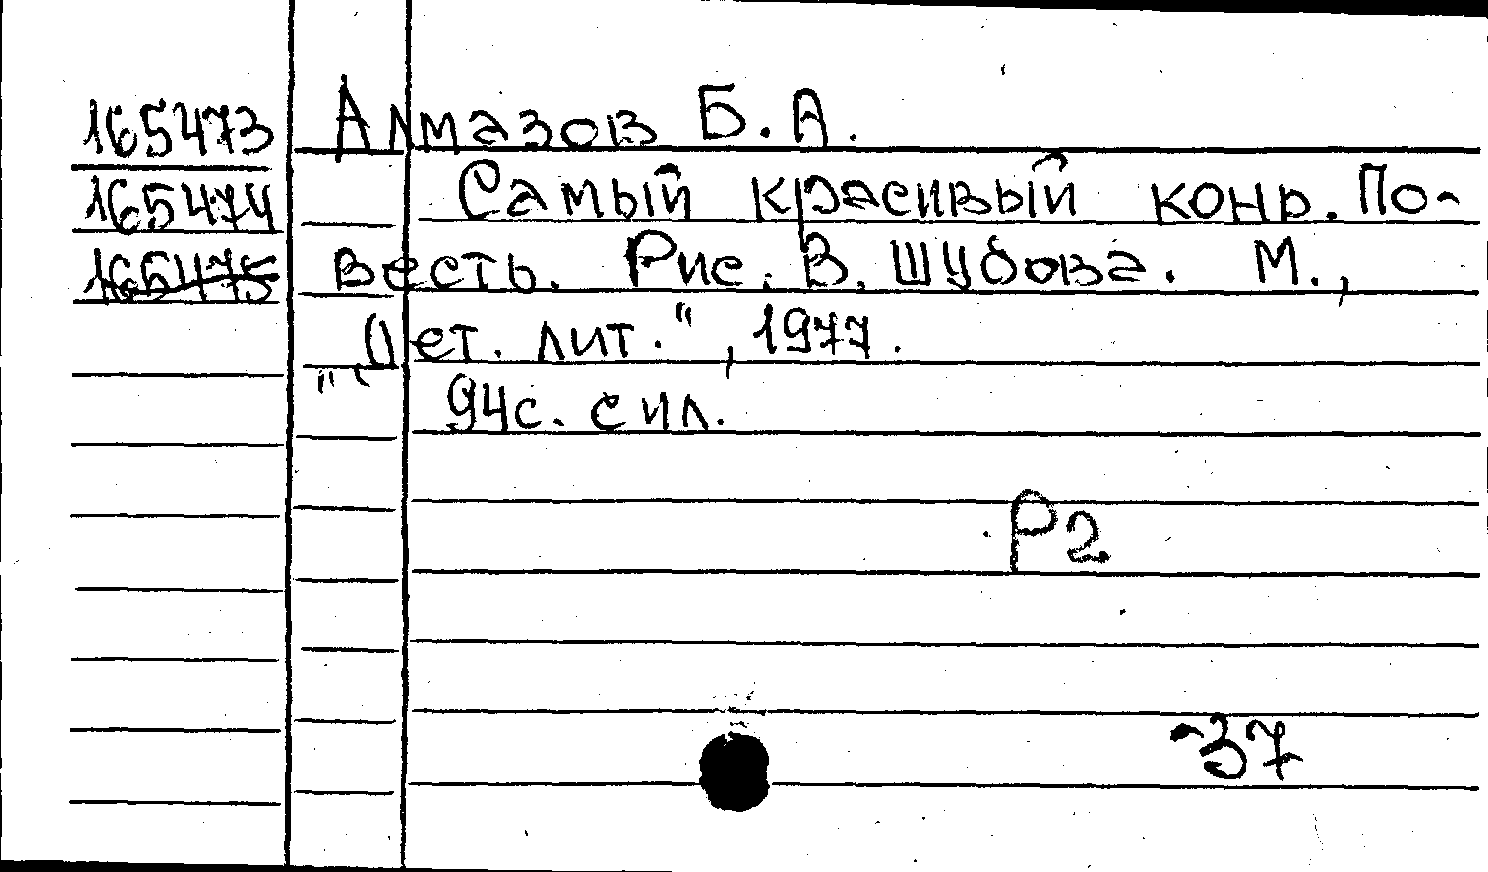 165473 Алмазов Б. А.
165474 Самый красивый конь. По-
165475 весть. Рис. В. Шубова. М.,
"Дет. лит.", 1977.
94с. с ил.
Р2
-37